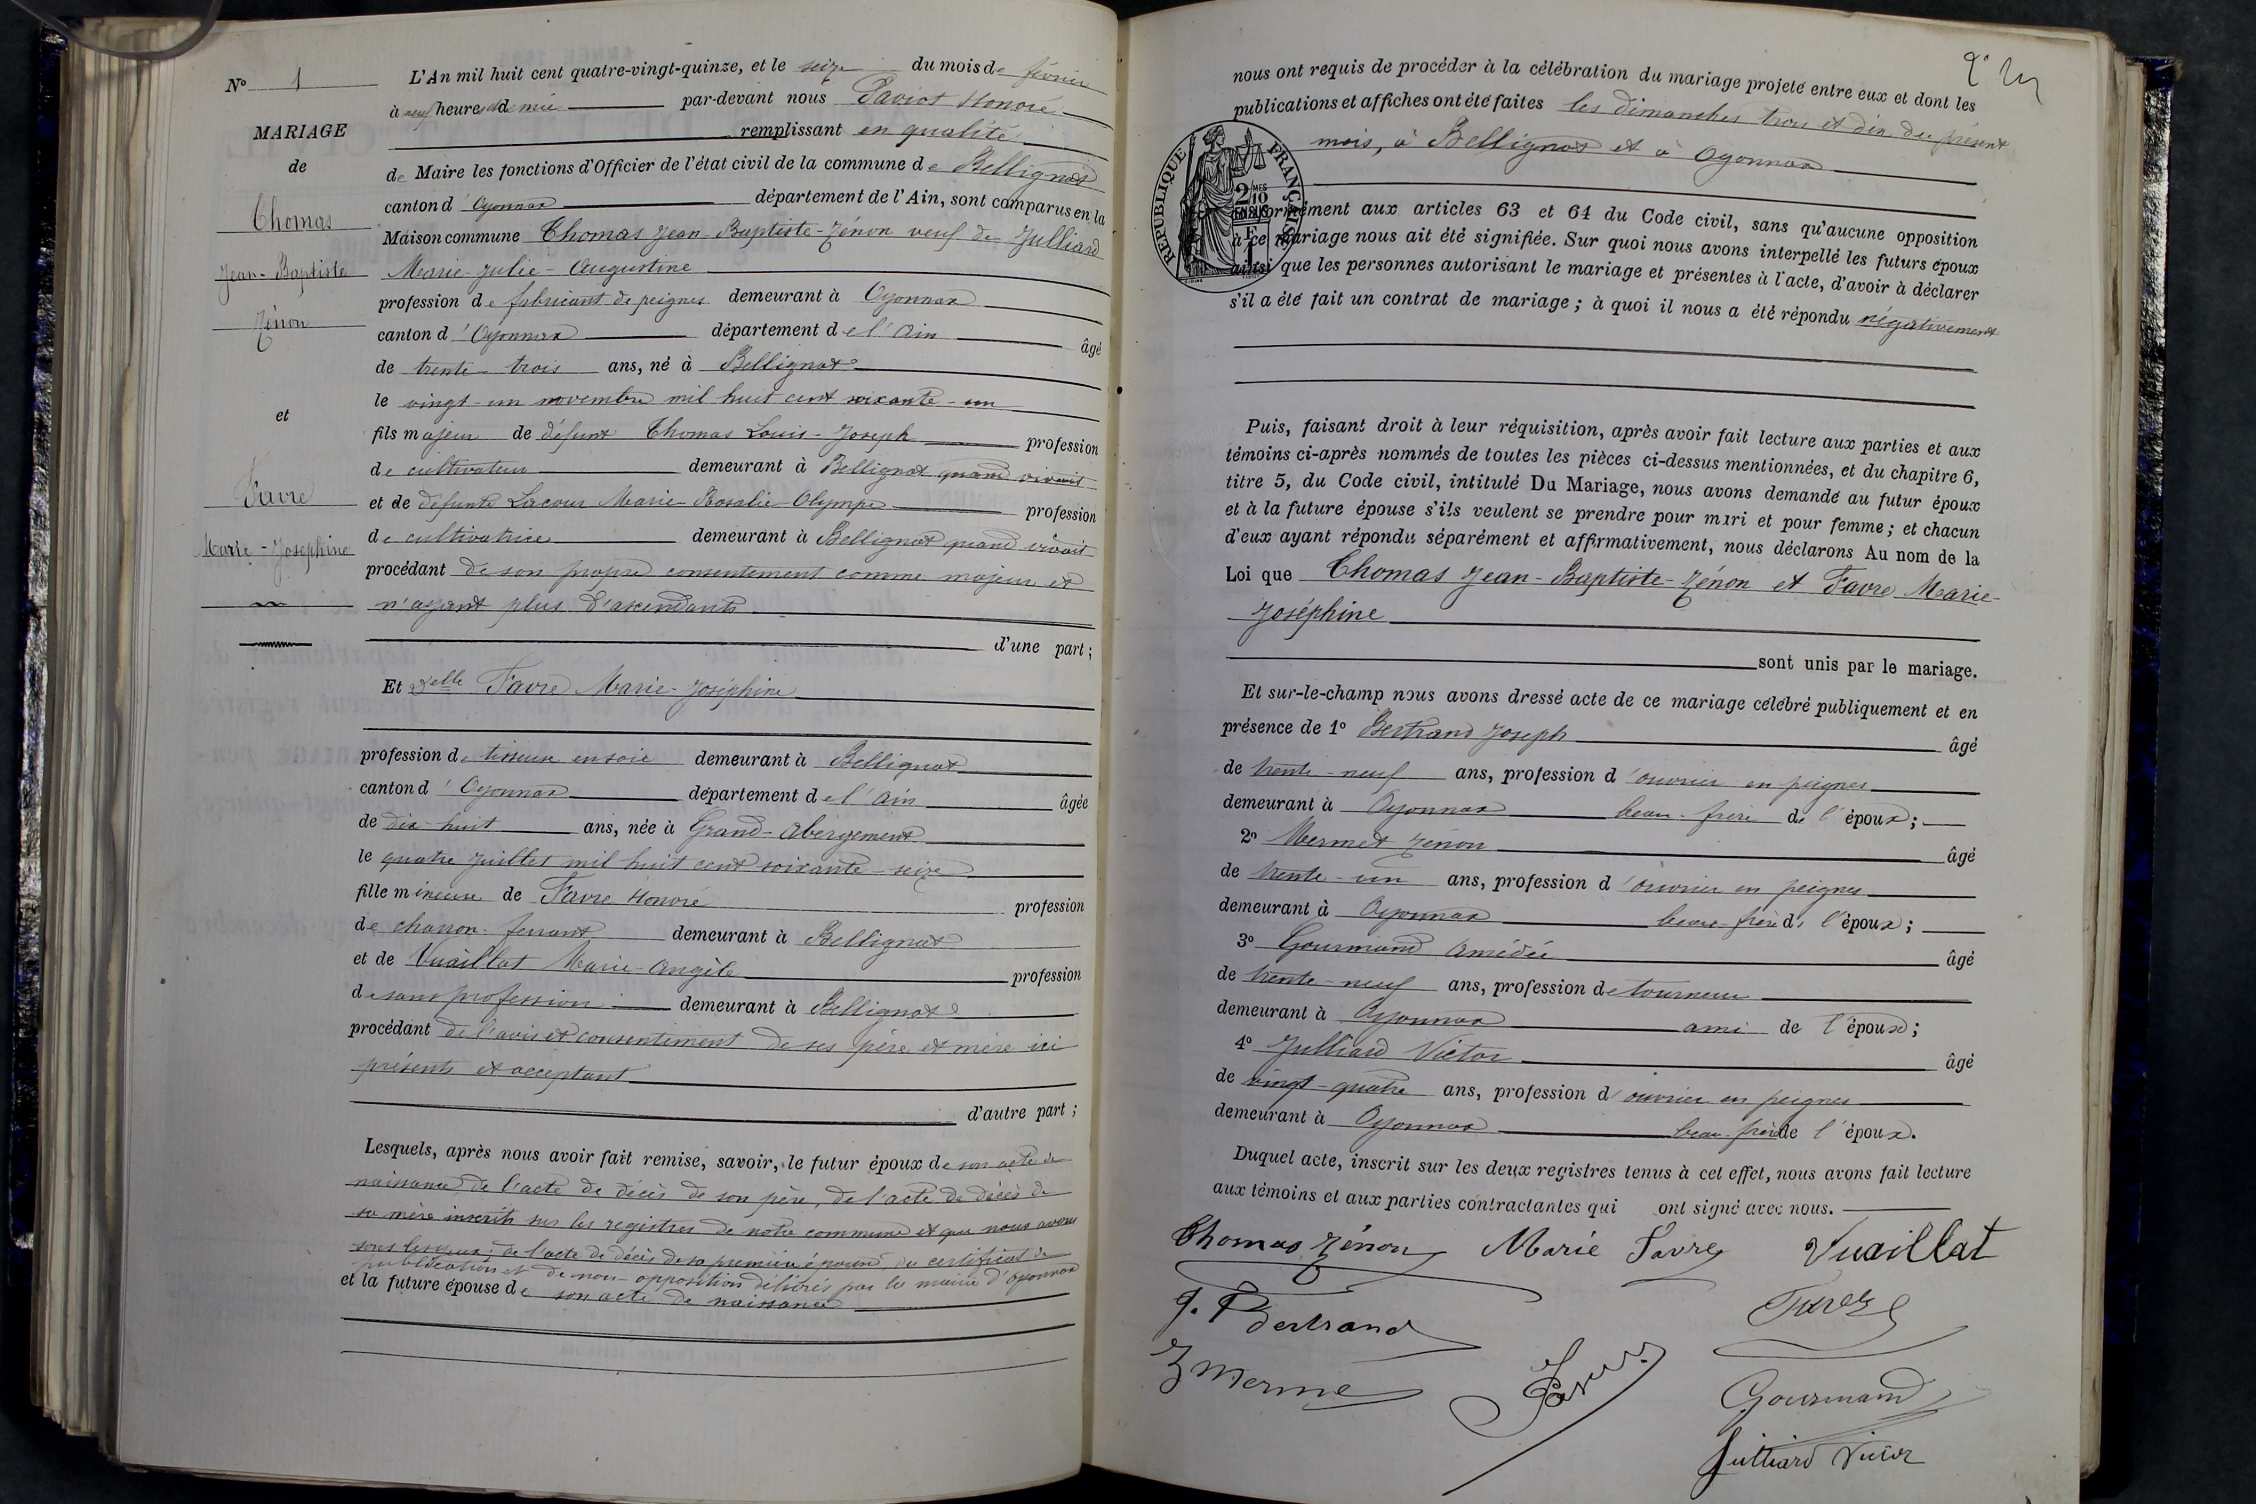 N° 1
MARIAGE
de
Thomas
Jean-Baptiste
Zénon
et
Favre
Marie-Joséphine
L'An mil huit cent quatre-vingt-quinze, et le seize du mois de février
à neuf heures et demie par-devant nous Paviot Honoré
remplissant en qualité
de Maire les fonctions d'Officier de l'état civil de la commune de Bellignat
canton d'Oyonnax département de l'Ain, sont comparus en la
Maison commune Thomas Jean-Baptiste-Zénon veuf de Julliard
Marie-Julie-Augustine
profession de fabricant de peignes demeurant à Oyonnax
canton d'Oyonnax département de l'Ain âgé
de trente-trois ans, né à Bellignat
le vingt-un novembre mil huit cent soixante-un
fils majeur de défunt Thomas Louis-Joseph profession
de cultivateur demeurant à Bellignat quand vivait
et de défunte Lacour Marie-Rosalie-Olympe profession
de cultivatrice demeurant à Bellignat quand vivait
procédant de son propre consentement comme majeur et
n'ayant plus d'ascendants
d'une part;
Et Delle Favre Marie-Joséphine
profession de tisseuse en soie demeurant à Bellignat
canton d'Oyonnax département de l'Ain âgée
de dix-huit ans, née à Grand-Abergement
le quatre juillet mil huit cent soixante-seize
fille mineure de Favre Honoré profession
de charron-ferrant demeurant à Bellignat
et de Vuaillat Marie-Angèle profession
de sans profession demeurant à Bellignat
procédant de l'avis et consentement de ses père et mère ici
présents et acceptant
d'autre part;
Lesquels, après nous avoir fait remise, savoir, le futur époux de son acte de
naissance, de l'acte de décès de son père, de l'acte de décès de
sa mère inscrits sur les registres de notre commune et que nous avons
sous les yeux; de l'acte de décès de sa première épouse, du certificat de
publications et de non-opposition délivrés par la mairie d'Oyonnax
et la future épouse de son acte de naissance
nous ont requis de procéder à la célébration du mariage projeté entre eux et dont les
publications et affiches ont été faites les dimanches trois et dix du présent
mois, à Bellignat et à Oyonnax
RÉPUBLIQUE FRANÇAISE
2/10 MES
EN SUS
conformément aux articles 63 et 64 du Code civil, sans qu'aucune opposition
à ce mariage nous ait été signifiée. Sur quoi nous avons interpellé les futurs époux
ainsi que les personnes autorisant le mariage et présentes à l'acte, d'avoir à déclarer
s'il a été fait un contrat de mariage; à quoi il nous a été répondu négativement
Puis, faisant droit à leur réquisition, après avoir fait lecture aux parties et aux
témoins ci-après nommés de toutes les pièces ci-dessus mentionnées, et du chapitre 6,
titre 5, du Code civil, intitulé Du Mariage, nous avons demandé au futur époux
et à la future épouse s'ils veulent se prendre pour mari et pour femme; et chacun
d'eux ayant répondu séparément et affirmativement, nous déclarons Au nom de la
Loi que Thomas Jean-Baptiste-Zénon et Favre Marie-
Joséphine
sont unis par le mariage.
Et sur-le-champ nous avons dressé acte de ce mariage célébré publiquement et en
présence de 1° Bertrand Joseph âgé
de trente-neuf ans, profession d'ouvrier en peignes
demeurant à Oyonnax beau-frère de l'époux;
2° Mermet Zénon âgé
de trente-un ans, profession d'ouvrier en peignes
demeurant à Oyonnax beau-frère de l'époux;
3° Gourmand Amédée âgé
de trente-neuf ans, profession de tourneur
demeurant à Oyonnax ami de l'époux;
4° Julliard Victor âgé
de vingt-quatre ans, profession d'ouvrier en peignes
demeurant à Oyonnax beau-frère de l'époux.
Duquel acte, inscrit sur les deux registres tenus à cet effet, nous avons fait lecture
aux témoins et aux parties contractantes qui ont signé avec nous.
Thomas Zénon Marie Favre Vuaillat
J. Bertrand Favre
Z Mermet
Gourmand
Julliard Victor